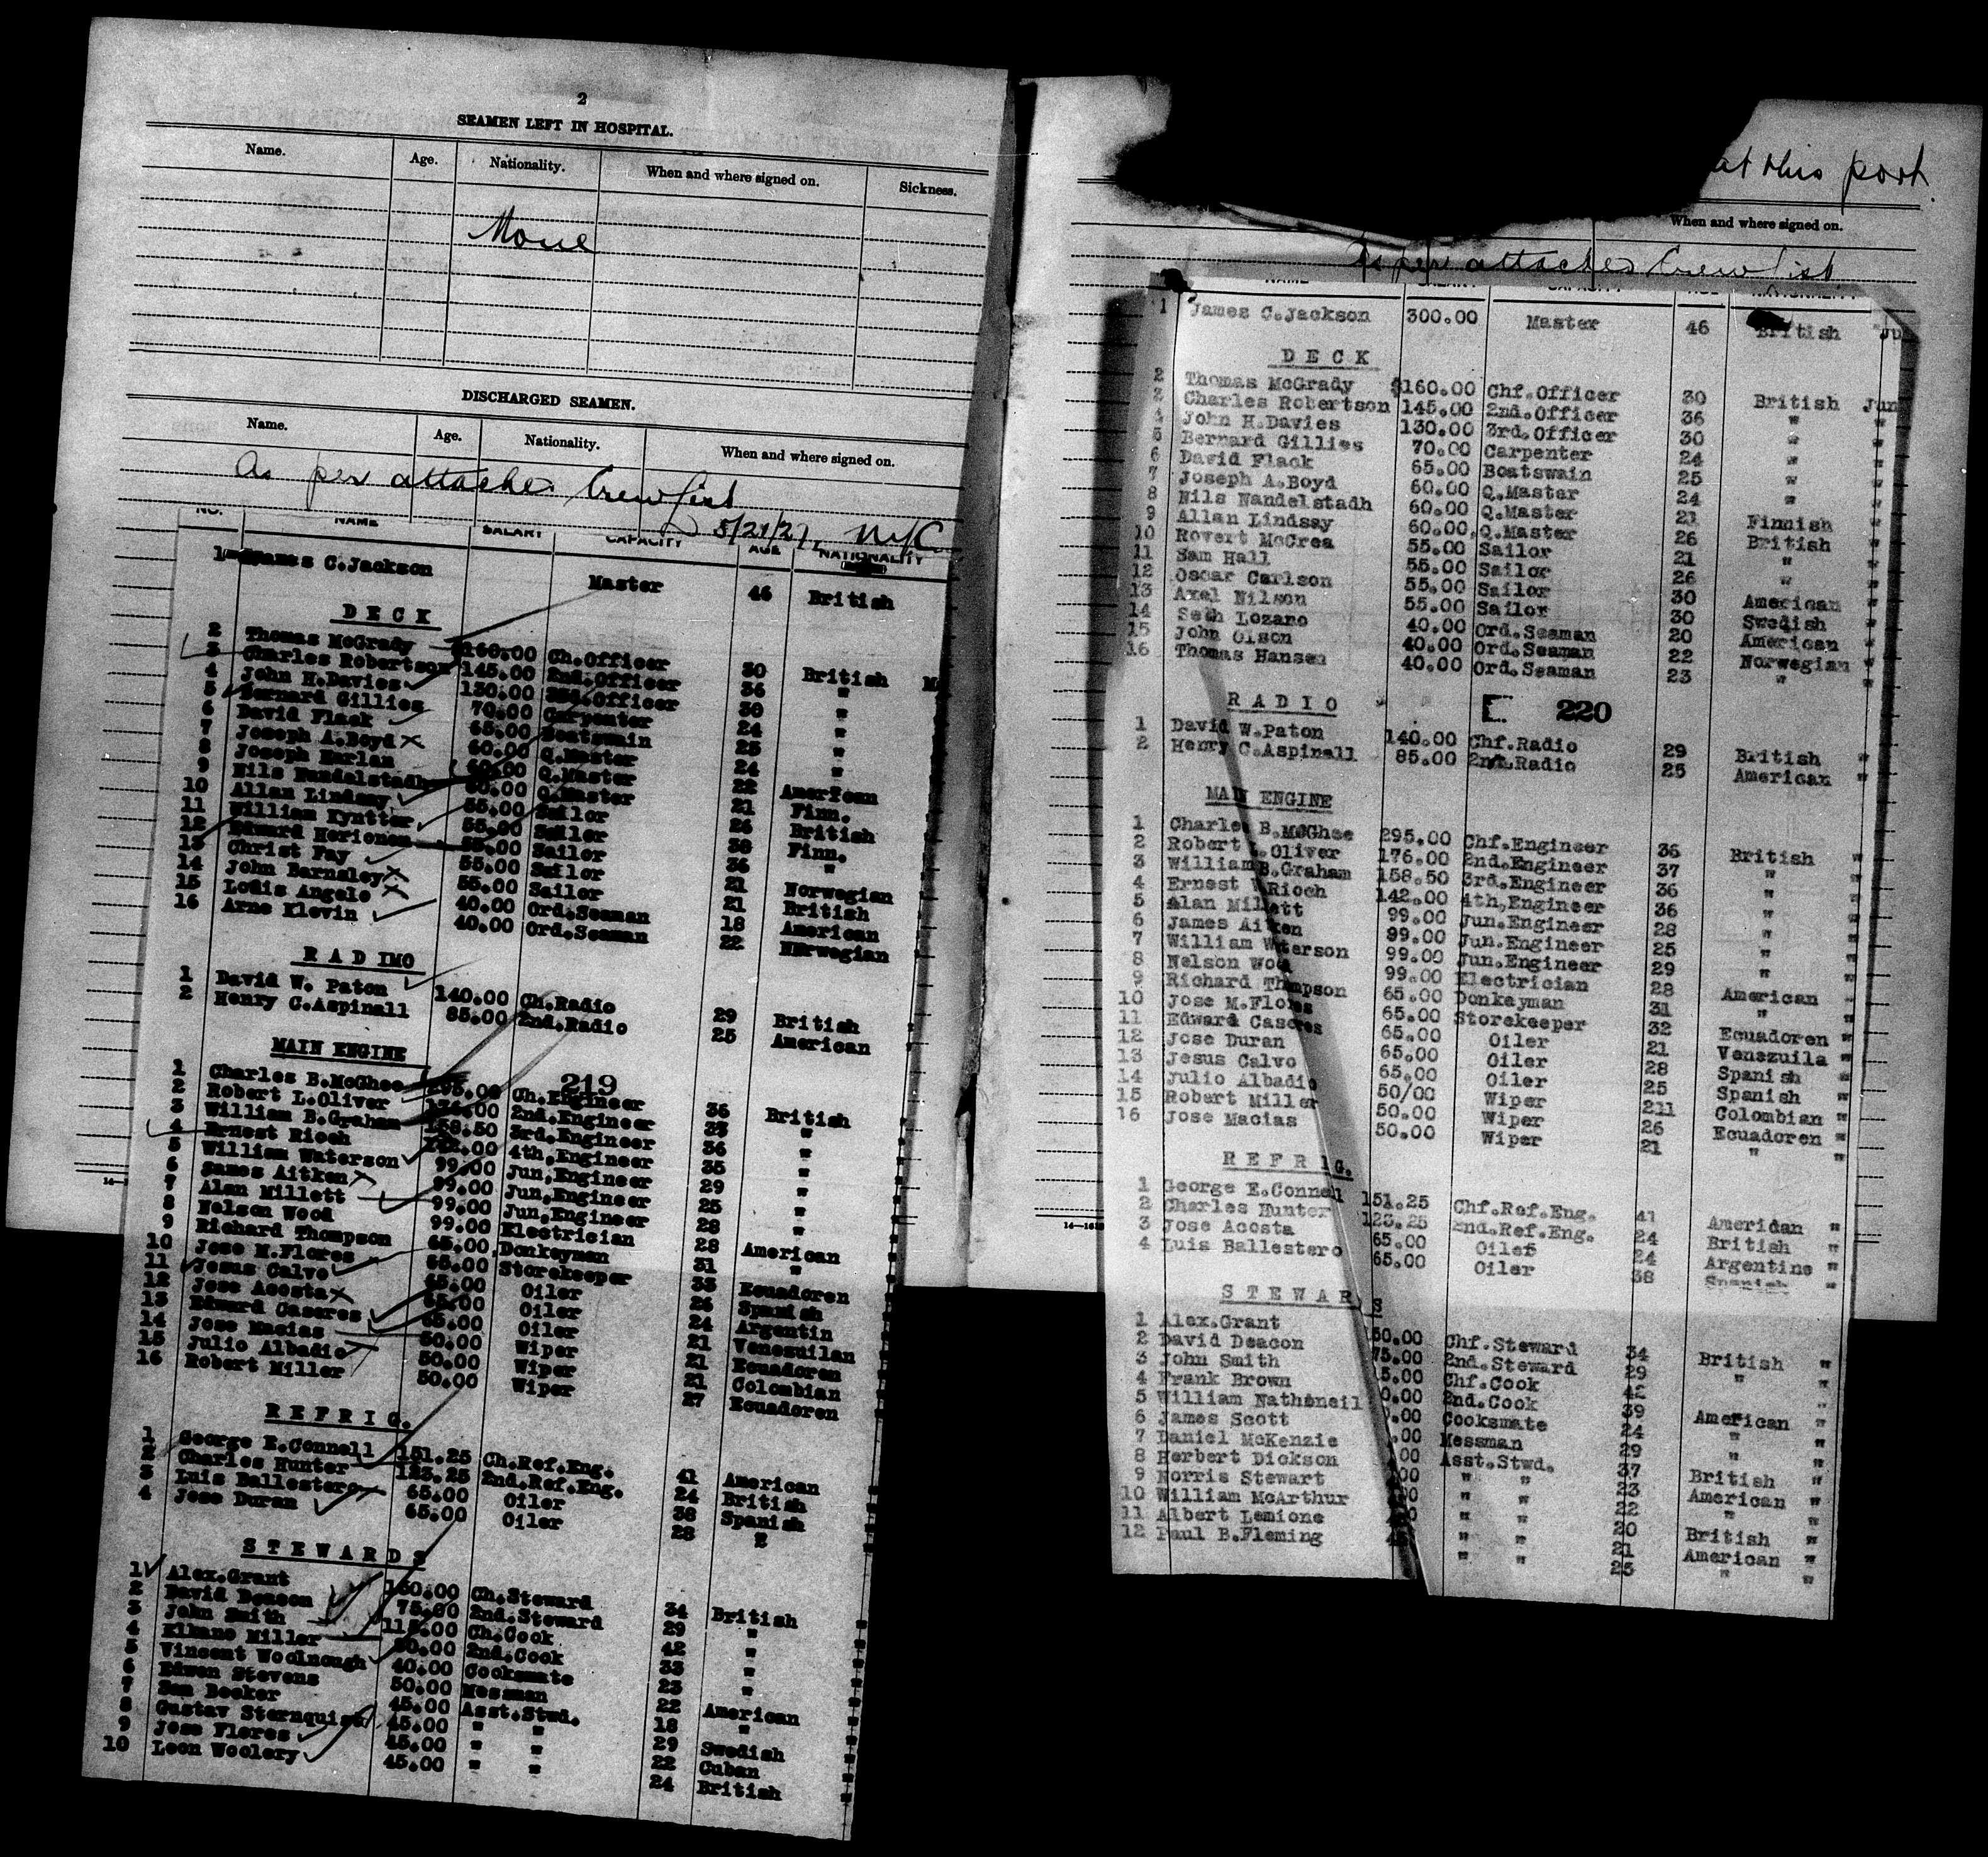 2
SEAMEN LEFT IN HOSPITAL.
Name. Age. Nationality. When and where signed on. Sickness.
None
DISCHARGED SEAMEN.
Name. Age. Nationality. When and where signed on.
As per attached Crew list
5/21/27, N.Y.C.
NO. NAME SALARY CAPACITY AGE NATIONALITY
1 James C.Jackson Master 46 British
D E C K
2 Thomas McGrady $160.00 Ch.Officer 30 British
3 Charles Robertson 145.00 2nd.Officer 36 "
4 John H.Davies 130.00 3rd.Officer 30 "
5 Bernard Gillies 70.00 Carpenter 24 "
6 David Flack 65.00 Boatswain 25 "
7 Joseph A.Boyd 60.00 Q.Master 24 "
8 Joseph Harlan 60.00 Q.Master 22 American
9 Nils Nandelstadh 60.00 Q.Master 21 Finn.
10 Allan Lindsay 55.00 Sailor 26 British
11 William Kyntter 55.00 Sailor 38 Finn.
12 Edward Herionen 55.00 Sailor 36 "
13 Christ Fay 55.00 Sailor 21 Norwegian
14 John Barnsley 55.00 Sailor 21 British
15 Louis Angelo 40.00 Ord.Seaman 18 American
16 Arne Klevin 40.00 Ord.Seaman 22 Norwegian
R A D IMO
1 David W. Paton 140.00 Ch.Radio 29 British "
2 Henry C.Aspinall 85.00 2nd.Radio 25 American "
MAIN ENGINE
219
1 Charles B.McGhee 295.00 Ch.Engineer 36 British
2 Robert L.Oliver 176.00 2nd.Engineer 37 "
3 William B.Graham 158.50 3rd.Engineer 36 "
4 Ernest Rioch 142.00 4th.Engineer 35 "
5 William Waterson 99.00 Jun.Engineer 29 "
6 James Aitken 99.00 Jun.Engineer 25 "
7 Alan Millett 99.00 Jun.Engineer 28 "
8 Nelson Wood 99.00 Electrician 28 American
9 Richard Thompson 65.00 Donkeyman 31 "
10 Jose M.Flores 65.00 Storekeeper 33 Ecuadoren
11 Jesus Calvo 65.00 Oiler 26 Spanish
12 Jose Acosta 65.00 Oiler 24 Argentin
13 Edward Caseres 65.00 Oiler 21 Venezuilan
14 Jose Macias 50.00 Wiper 21 Ecuadoren
15 Julio Albadio 50.00 Wiper 21 Colombian
16 Robert Miller 50.00 Wiper 27 Ecuadoren
R E F R I G.
1 George E.Connell 151.25 Ch.Ref.Eng. 41 American
2 Charles Hunter 123.25 2nd.Ref.Eng. 24 British
3 Luis Ballestero 65.00 Oiler 38 Spanish
4 Jose Duran 65.00 Oiler 28 "
S T E W A R D S
1 Alex.Grant 150.00 Ch.Steward 34 British "
2 David Deacon 75.00 2nd.Steward 29 " "
3 John Smith 115.00 Ch.Cook 42 " "
4 Elkano Miller 90.00 2nd.Cook 33 " "
5 Vincent Woolnough 40.00 Cooksmate 23 " "
6 Edwen Stevens 50.00 Messman 22 American "
7 Sam Becker 45.00 Asst.Stwd. 18 " "
8 Gustav Sternquist 45.00 " " 29 Swedish "
9 Jose Flores 45.00 " " 22 Cuban "
10 Leon Woolery 45.00 " " 24 British "
at this port.
When and where signed on.
As per attached Crew list
NAME SALARY CAPACITY AGE NATIONALITY
1 James C.Jackson 300.00 Master 46 British Ju
D E C K
2 Thomas McGrady $160.00 Chf.Officer 30 British Jun
3 Charles Robertson 145.00 2nd.Officer 36 " "
4 John H.Davies 130.00 3rd.Officer 30 " "
5 Bernard Gillies 70.00 Carpenter 24 " "
6 David Flack 65.00 Boatswain 25 " "
7 Joseph A.Boyd 60.00 Q.Master 24 " "
8 Nils Nandelstadh 60.00 Q.Master 21 Finnish "
9 Allan Lindsay 60.00 Q.Master 26 British "
10 Rovert McCrea 55.00 Sailor 21 " "
11 Sam Hall 55.00 Sailor 26 " "
12 Oscar Carlson 55.00 Sailor 30 American "
13 Axel Nilson 55.00 Sailor 30 Swedish "
14 Seth Lozano 40.00 Ord.Seaman 20 American "
15 John Olson 40.00 Ord.Seaman 22 Norwegian "
16 Thomas Hansen 40.00 Ord.Seaman 23 " "
E 220
R A D I O
1 David W.Paton 140.00 Chf.Radio 29 British "
2 Henry C.Aspinall 85.00 2nd.Radio 25 American "
MAIN ENGINE
1 Charles B.McGhee 295.00 Chf.Engineer 36 British "
2 Robert L.Oliver 176.00 2nd.Engineer 37 " "
3 William B.Graham 158.50 3rd.Engineer 36 " "
4 Ernest Rioch 142.00 4th,Engineer 36 " "
5 Alan Millett 99.00 Jun.Engineer 28 " "
6 James Aitken 99.00 Jun.Engineer 25 " "
7 William Waterson 99.00 Jun.Engineer 29 " "
8 Nelson Wood 99.00 Electrician 28 American "
9 Richard Thompson 65.00 Donkeyman 31 " "
10 Jose M.Flores 65.00 Storekeeper 32 Ecuadoren "
11 Edward Caseres 65.00 Oiler 21 Venezuila "
12 Jose Duran 65.00 Oiler 28 Spanish "
13 Jesus Calvo 65.00 Oiler 25 Spanish "
14 Julio Albadio 50/00 Wiper 211 Colombian "
15 Robert Miller 50.00 Wiper 26 Ecuadoren "
16 Jose Macias 50.00 Wiper 21 " "
R E F R I G.
1 George E.Connell 151.25 Chf.Ref.Eng. 41 Ameridan "
2 Charles Hunter 123.25 2nd.Ref.Eng. 24 British "
3 Jose Acosta 65.00 Oiler 24 Argentine "
4 Luis Ballestero 65.00 Oiler 38 Spanish "
S T E W A R D S
1 Alex.Grant 150.00 Chf.Steward 34 British "
2 David Deacon 75.00 2nd.Steward 29 " "
3 John Smith 5.00 Chf.Cook 42 "
4 Frank Brown 0.00 2nd.Cook 39 American "
5 William Nathaneil .00 Cooksmate 24 " "
6 James Scott .00 Messman 29 " "
7 Daniel McKenzie 00 Asst.Stwd. 37 British "
8 Herbert Dickson 00 " " 23 American "
9 Norris Stewart " " 22 " "
10 William McArthur " " 20 British "
11 Albert Lemione " " 21 American "
12 Paul B.Fleming " " 25 " "